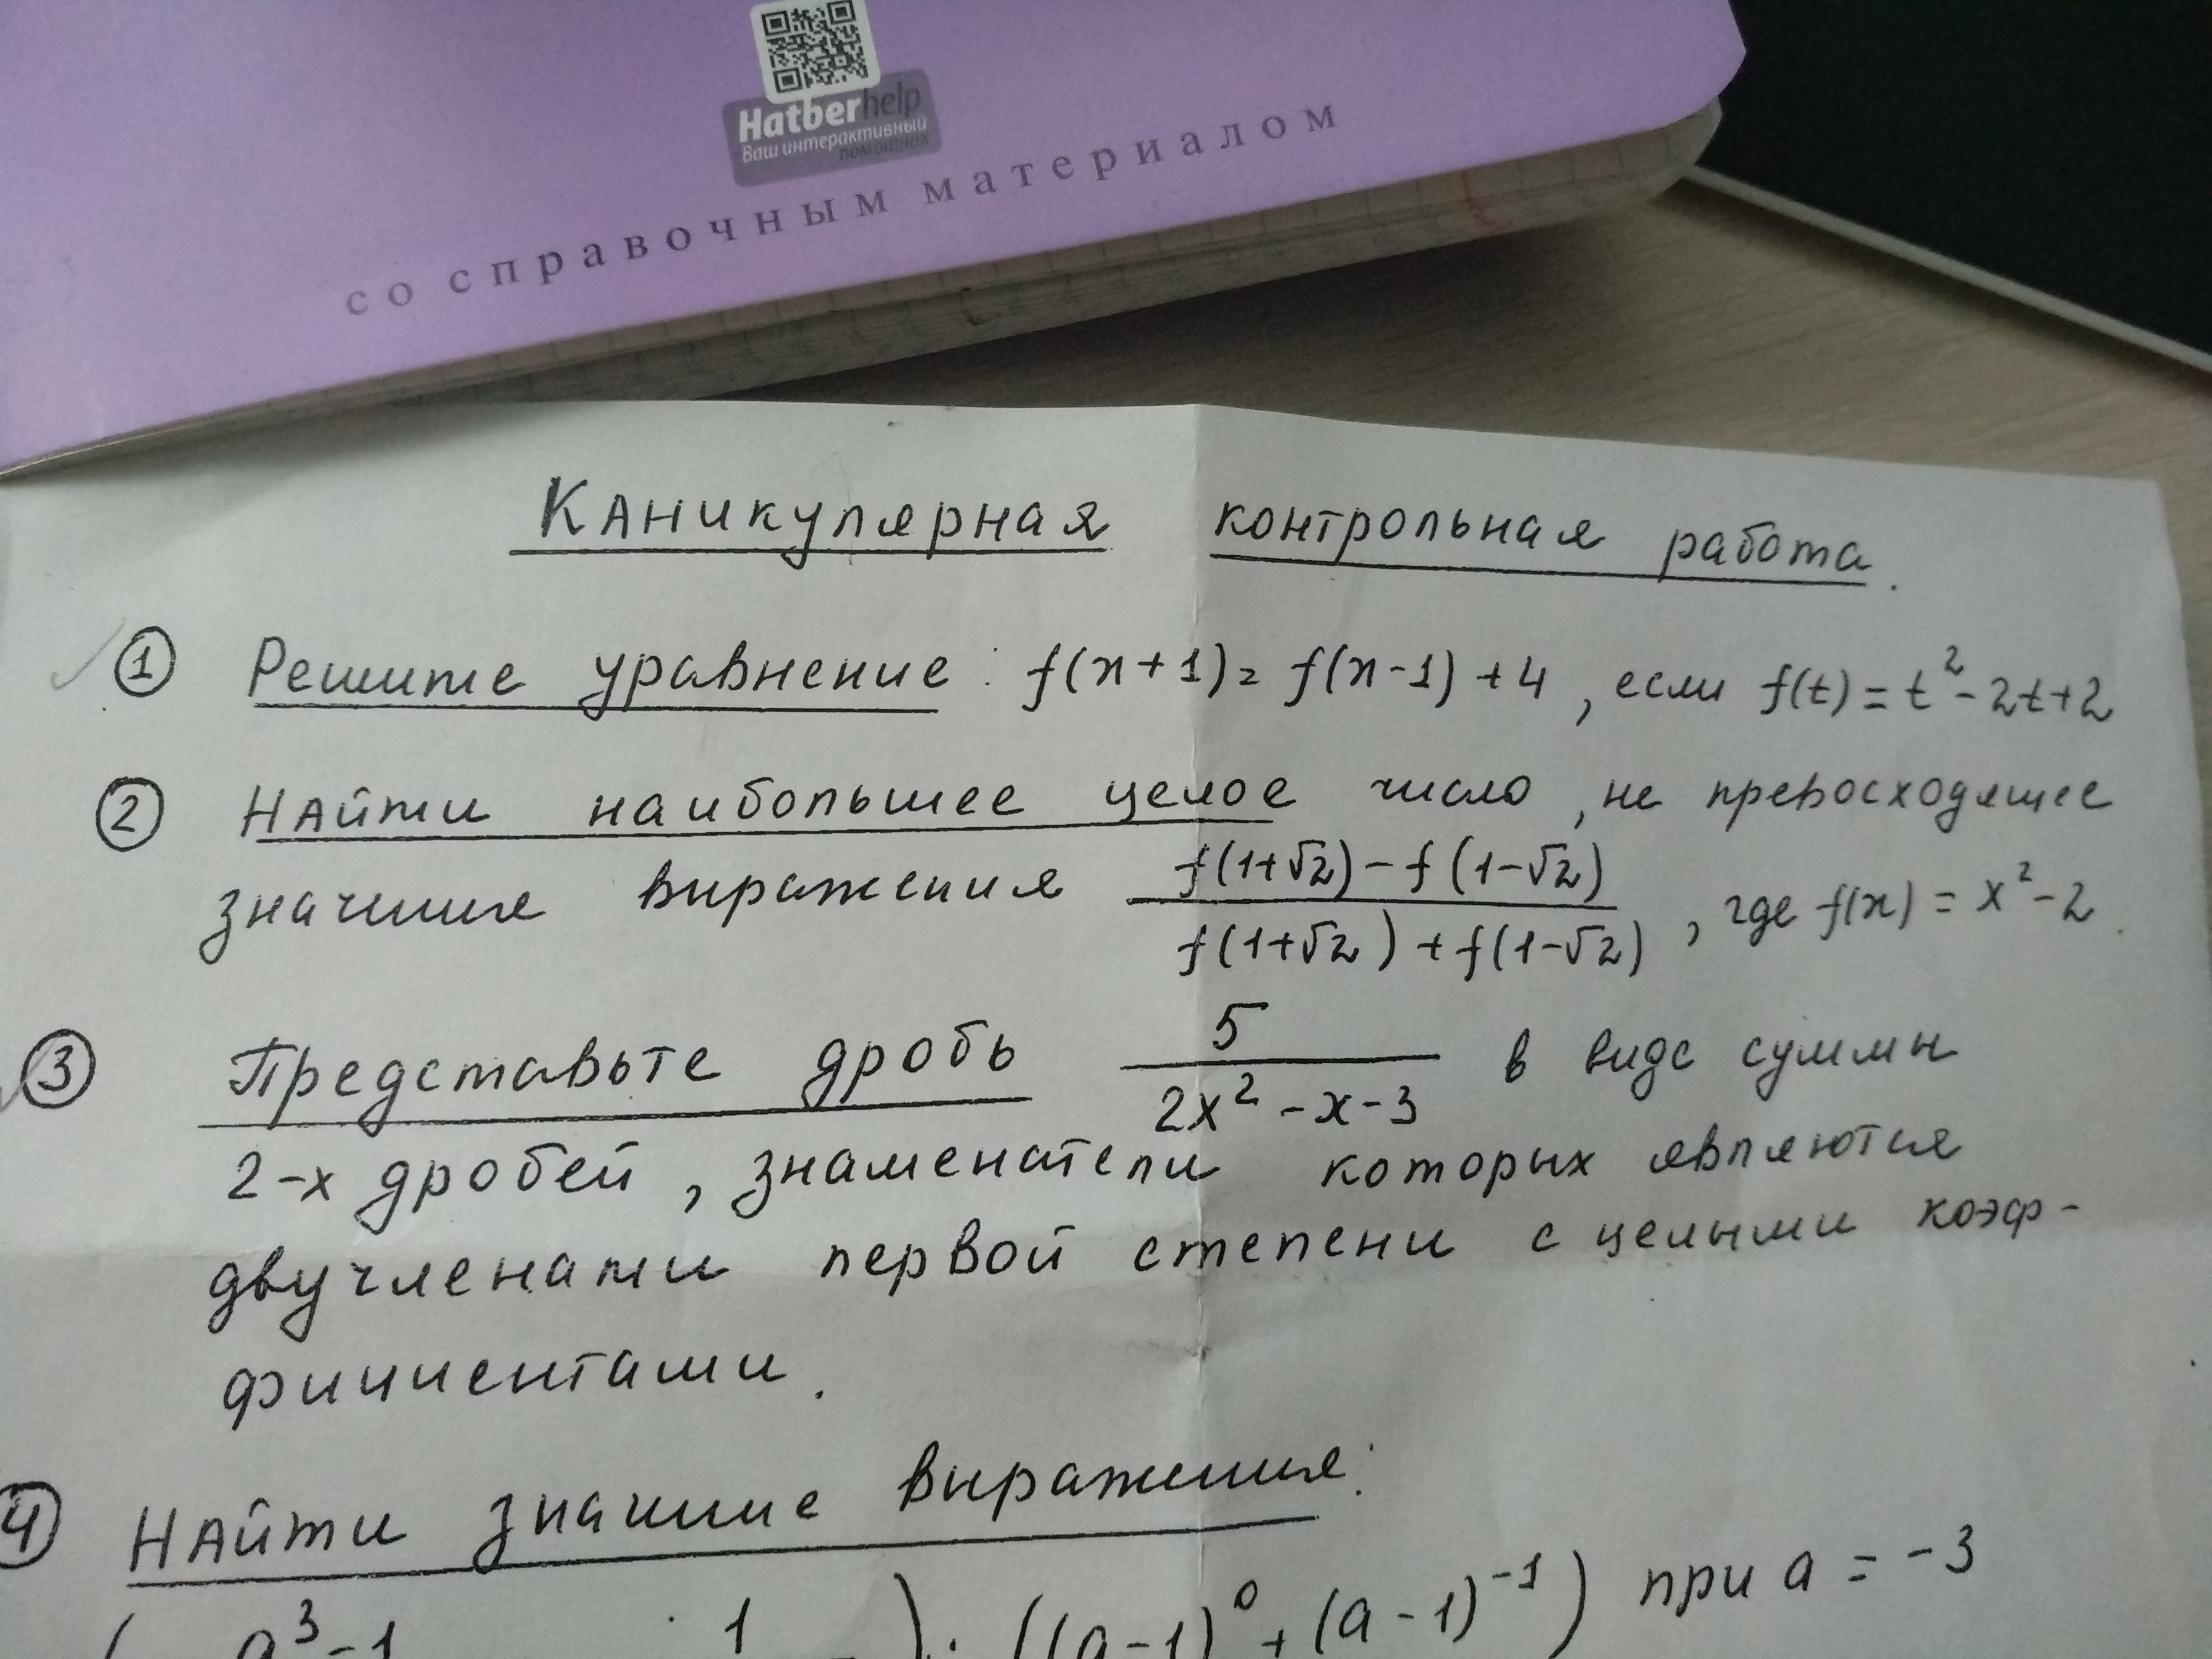 Hatberhelp
Ваш интерактивный
помощник
со справочным материалом
Каникулярная контрольная работа.
① Решите уравнение: f(x+1) = f(x-1) + 4, если f(t) = t² - 2t + 2
② Найти наибольшее целое число, не превосходящее
значения выражения \frac{f(1+√2) - f(1-√2)}{f(1+√2) + f(1-√2)}, где f(x) = x² - 2.
③ Представьте дробь \frac{5}{2x² - x - 3} в виде суммы
2-х дробей, знаменатели которых являются
двучленами первой степени с целыми коэф-
фициентами.
④ Найти значение выражения:
( a³-1 1 ) : ((a-1)⁰ + (a-1)⁻¹) при a = -3